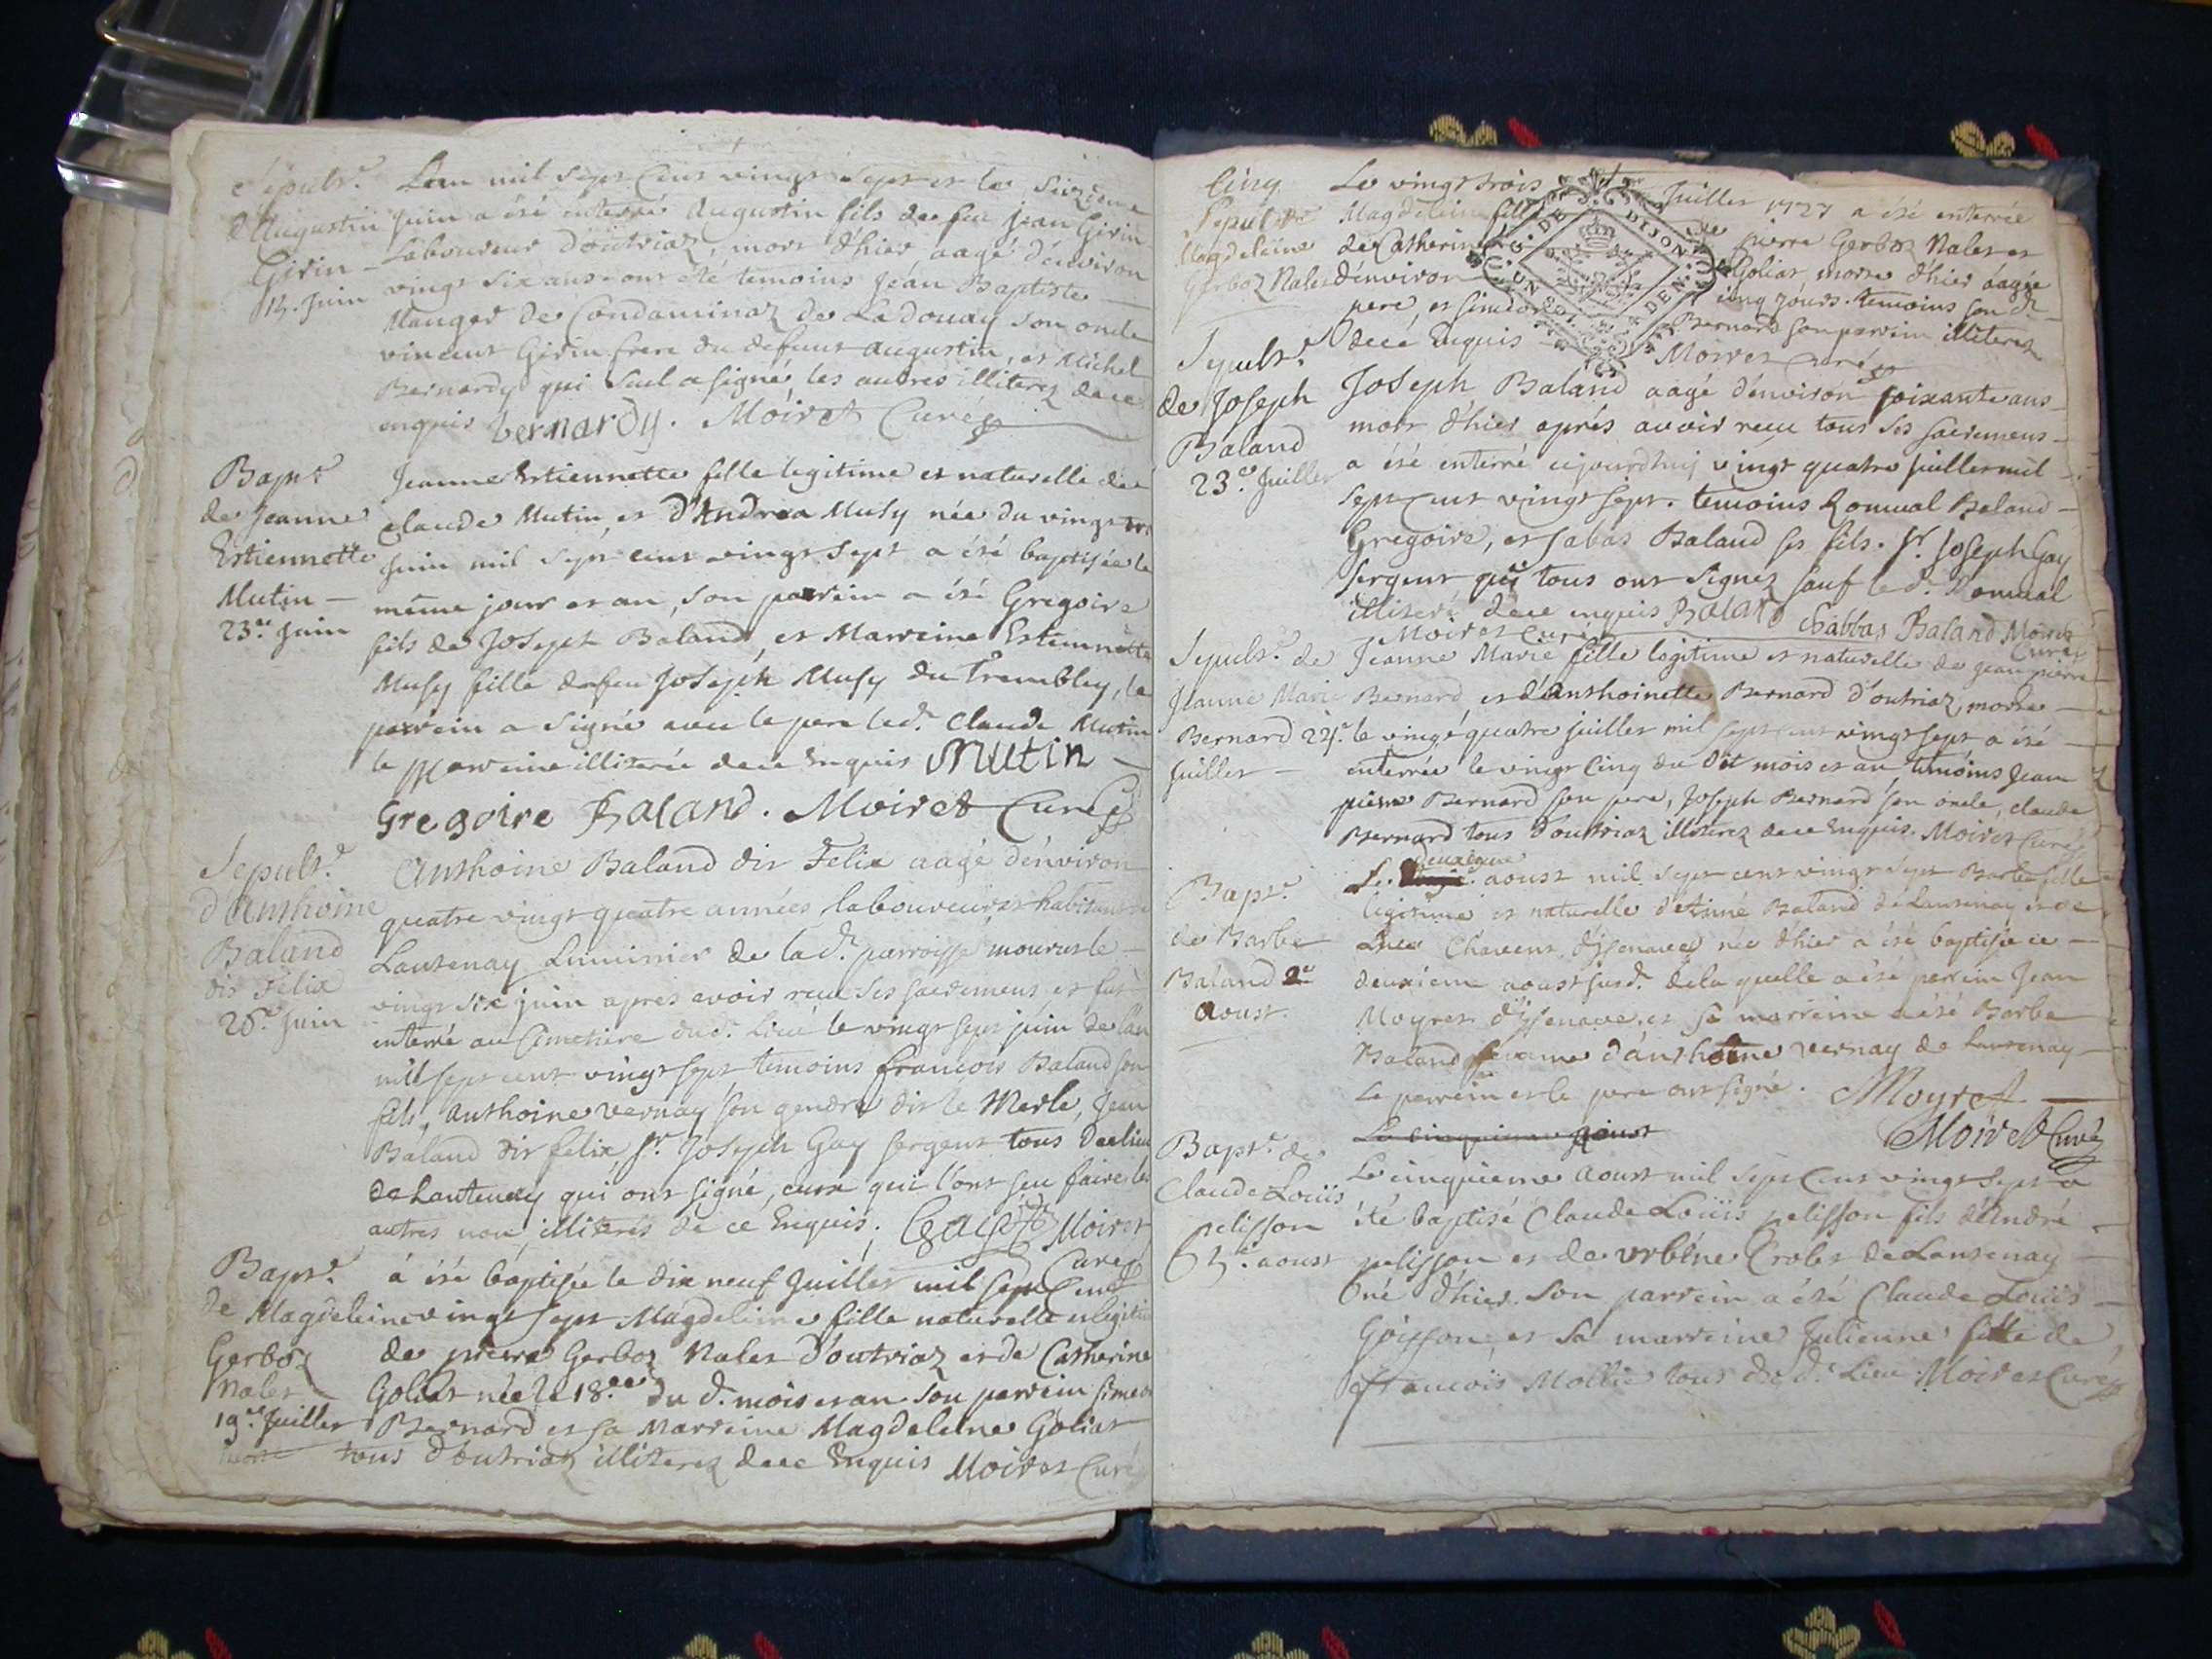 Sepult.e
d'Augustin
Girin
15. Juin
L'an mil sept cent vingt sept et le sixième
Juin a été enterré Augustin fils de feu Jean Girin
Laboureur d'outriaz, mort d'hier, aagé d'énviron
vingt six ans. ont été temoins Jean Baptiste
Mauger de Condaminaz de Ladouay son oncle
vincent Girin frere du defunt Augustin, et Michel
Bernardy qui seul a signé, les autres illiterez de ce
enquis bernardy. Moiret Curé
Bapt.e
de Jeanne
Estiennette
Mutin
23.e Juin
Jeanne Estiennette fille legitime et naturelle de
Claude Mutin, et d'Andrea Musy née du vingt
Juin mil sept cent vingt sept a été baptisée le
même jour et an, son parrein a été Gregoire
fils de Joseph Baland, et Marreine Estiennette
Musy fille de feu Joseph Musy du Trembley, le
parrein a signé avec le pere led.t Claude Mutin
la Marreine illiterée de ce Enquis Mutin
Gregoire Baland. Moiret Curé
Sepult.e
d'Anthoine
Baland
dit Felix
26.e Juin
Anthoine Baland dit Felix aagé d'énviron
quatre vingt quatre années laboureur et habitant
Lantenay Luminier de lad.e parroisse mourut le
vingt six juin apres avoir receu ses sacremens et fut
enterré au Cimetiere dud. Lieu le vingt sept juin de l'an
mil sept cent vingt sept temoins françois Baland son
fils, Anthoine vernay son gendre dit le Merle, Jean
Baland dit felix Sr. Joseph Gay sergent tous de
de Lantenay qui ont signé, ceux qui l'ont seu faire les
autres non, illiterés de ce Enquis. Gay Moiret
Curé
Bapt.e
de Magdeleine
Gerboz
Nalet
19.e Juillet
morte
á été baptisée le dix neuf Juillet mil sept cent
vingt sept Magdeleine fille naturelle et legitime
de pierre Gerboz Nalet d'outriaz et de Catherine
Goliat née le 18.e du d. mois et an. Son parrein simeon
Bernard et sa Marreine Magdeleine Goliat
tous d'outriaz illiterez de ce Enquis Moiret Curé
Cinq
Sepulture
Magdeleine
Gerboz Nalet
Le vingt trois Juillet 1727 a été enterrée
Magdeleine fille de pierre Gerboz Nalet et
de Catherine Goliat, morte d'hier áagée
d'énviron cinq jours. temoins son dt
pere, et simeon Bernard son parrein illiterez
de ce Enquis Moiret Curé
G. DE DIJON
UN SOL DEN.
Sepult.e
de Joseph
Baland
23.e Juillet
Joseph Baland aagé d'énviron soixante ans
mort d'hier aprés avoir receu tous ses sacremens
a été enterré cejourdhuy vingt quatre juillet mil
sept cent vingt sept. temoins Romual Baland
Gregoire, et sabas Baland ses fils. Sr. Joseph Gay
sergent qui tous ont signez sauf le d. Romual
illiteré de ce enquis Baland Chabbas Baland Moiret
Moiret Curé Curé
Sepult.e de
Jeanne Marie
Bernard 24.e
Juillet
Jeanne Marie fille legitime et naturelle de jean pierre
Bernard, et d'Anthoinette Bernard d'outriaz, morte
le vingt quatre juillet mil sept cent vingt sept a été
enterrée le vingt Cinq du dit mois et an, témoins Jean
pierre Bernard son pere, Joseph Bernard son oncle, claude
Bernard tous d'outriaz illiterez de ce Enquis. Moiret Curé
Bapt.e
de Barbe
Baland 2.e
Aoust
deuxieme
Le aoust mil sept cent vingt sept Barbe fille
legitime et naturelle d'Aimé Baland de Lantenay et de
Luce Chavent d'issenave née d'hier a été baptisée ce
deuxieme aoust susd. de la quelle a été parrein Jean
Moyret d'issenave, et sa marreine a été Barbe
Baland femme d'ánthoine vernay de Lantenay
Le parrein et le pere ont signé. Moyret
Moiret Curé
Le cinquieme Aoust
Bapt.e de
Claude Loüis
pelisson
5.e aoust
Le cinquieme Aoust mil sept cent vingt sept a
été baptisé Claude Loüis pelisson fils d'André
pelisson et de vrbéne Crolet de Lantenay
né d'hier. Son parrein a été Claude Loüis
Goisson, et sa marreine Julienne fille de
francois Mollie tous dud. Lieu. Moiret Curé